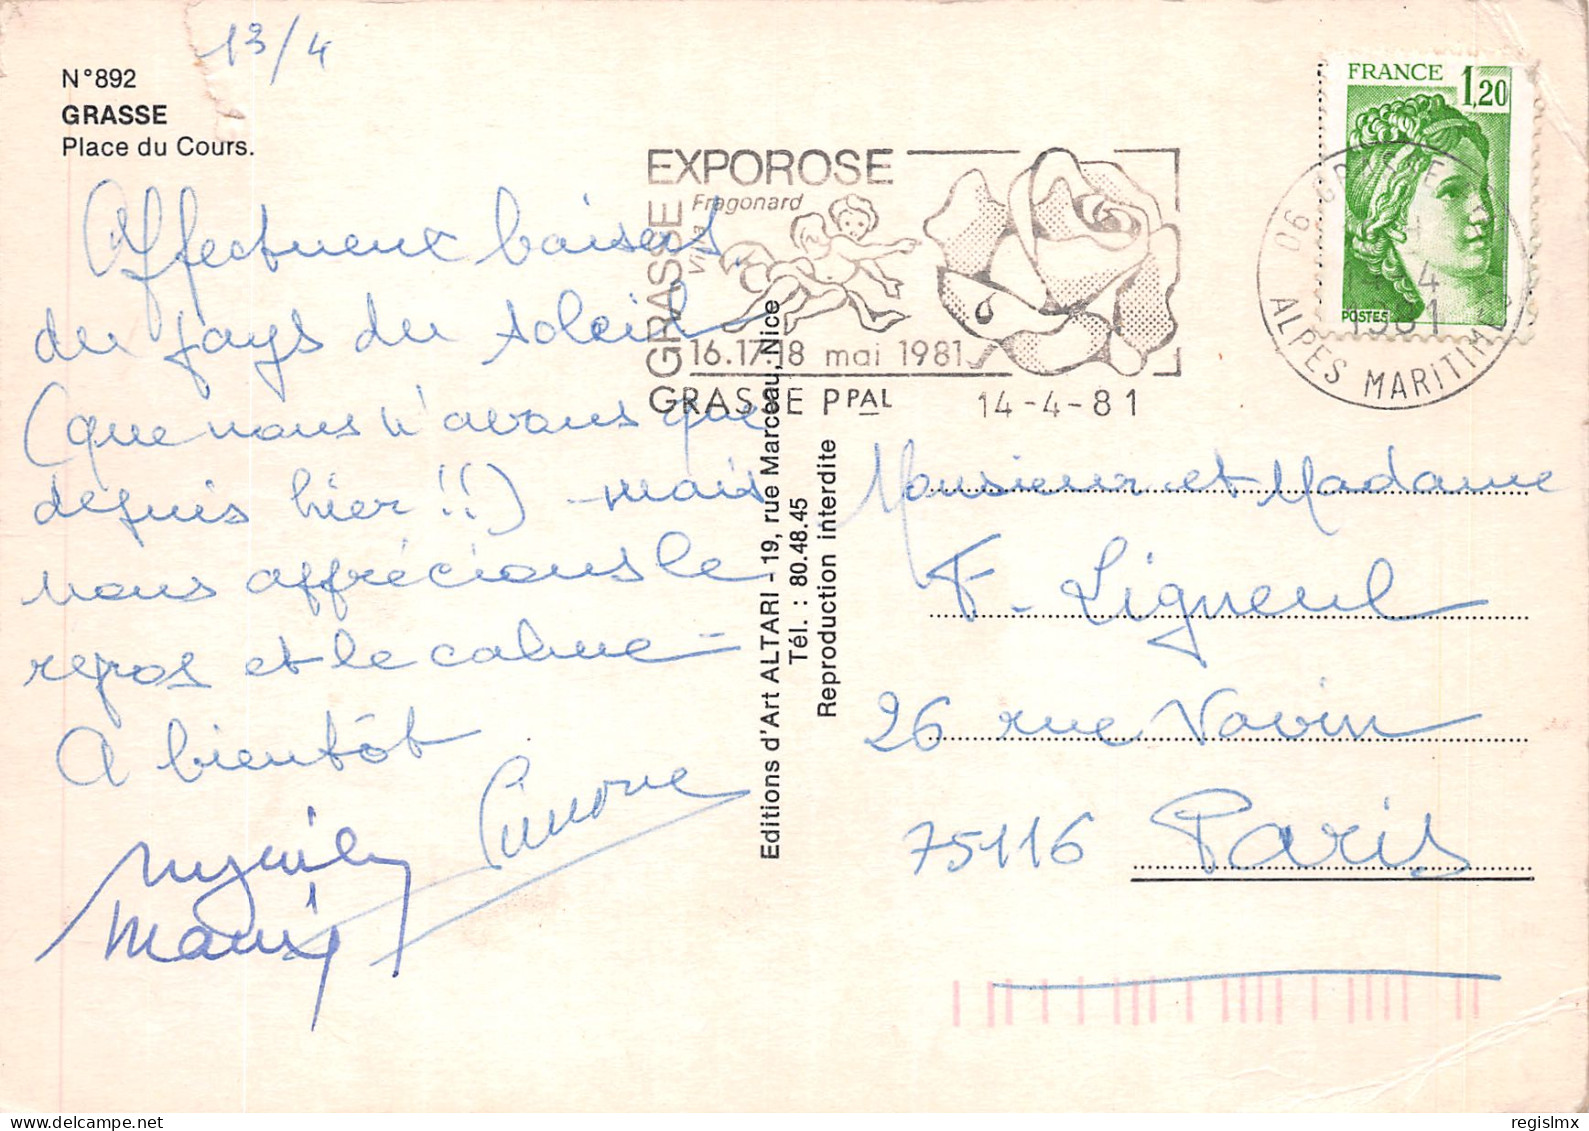 13/4
N°892
GRASSE
Place du Cours.
Affectueux baisers
du pays du soleil
(que nous n'avons que
depuis hier !!) mais
nous apprécions le
repos et le calme -
A bientôt
Simone
EXPOROSE
GRASSE
Viva Fragonard
16.17.18 mai 1981
GRASSE PPAL 14-4-81
FRANCE 1,20
POSTES
06 GRASSE
14-4
1981
ALPES MARITIMES
Editions d'Art ALTARI - 19, rue Marceau, Nice
Tél. : 80.48.45
Reproduction interdite
Monsieur et Madame
F. Ligneul
26 rue Vavin
75116 Paris
regislmx